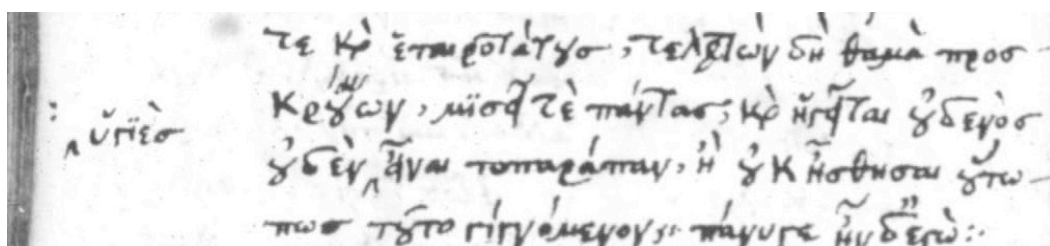 τε καὶ ἑταιροτάτους, τελευτῶν δὴ θαμὰ προσ
κρούων, μισεῖ τὲ πάντας; καὶ ἡγεῖται οὐδενὸς
ὑγιὲς
οὐδὲν εἶναι τοπαράπαν, ἢ οὐκ ᾔσθησαι οὕτω
πως τοῦτο γιγνόμενον; πάνυγε ἦν δ' ἐγὼ:·